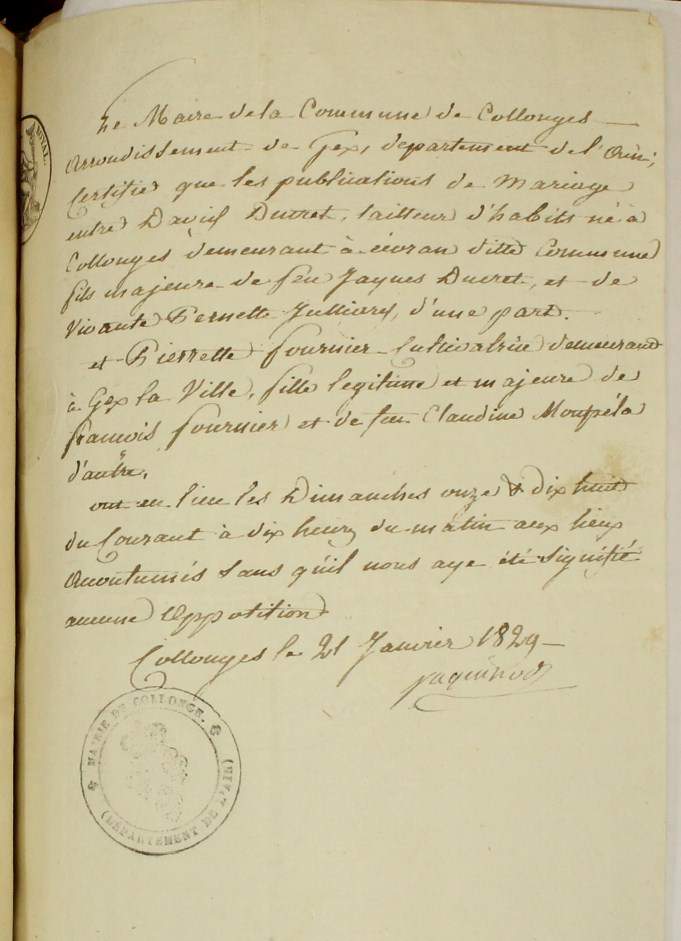 Le Maire de la Commune de Collonges
Arrondissement de Gex, departement de l'Ain;
Certifie que les publications de Mariage
entre David Ducret, tailleur d'habits né à
Collonges demeurant à écoran ditte Commune
fils majeure de feu Jaques Ducret, et de
Vivante Pernette Julliard, d'une part.
et Pierrette fournier Cultivatrice demeurant
à Gex la Ville, fille legitime et majeure de
françois fournier et de feu Claudine
d'autre,
ont eu lieu les Dimanches onze & dix huit
du Courant à dix heures du matin aux lieux
Accoutumés sans qu'il nous aye été signifié
aucune Opposition
Collonges le 21 Janvier 1829
MAIRIE DE COLLONGE.
(DÉPARTEMENT DE L'AIN)
ROYAL.